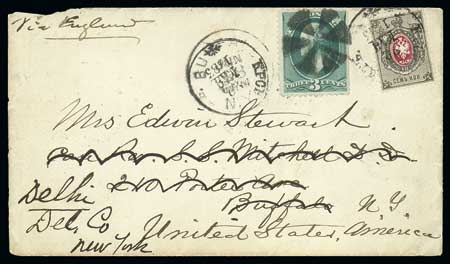 Via England
THREE 3 CENTS
СЕМЬ КОП.
Mrs Edwin Stewart
Care Rev S. S. Mitchell D. D.
210 Porter Ave
Buffalo N. Y.
Delhi
Del. Co
New York
United States, America